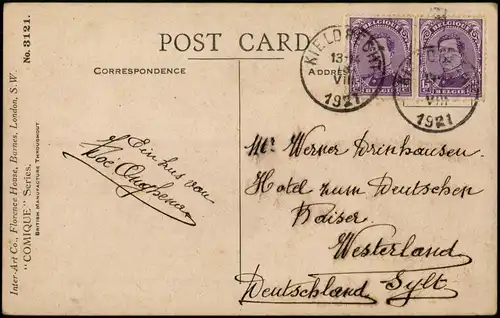 POST CARD
CORRESPONDENCE
ADDRESS
Inter-Art Co., Florence House, Barnes, London, S.W.
"COMIQUE" Series.
No. 3121.
BRITISH MANUFACTURE THROUGHOUT
BELGIQUE
BELGIQUE
KIELDRECHT
13-
VIII
1921
VIII
1921
15
15
BELGIE
BELGIE
Ein
von
Mr. Werner Drinhausen
Hotel zum Deutschen
Kaiser
Westerland
Deutschland Sylt